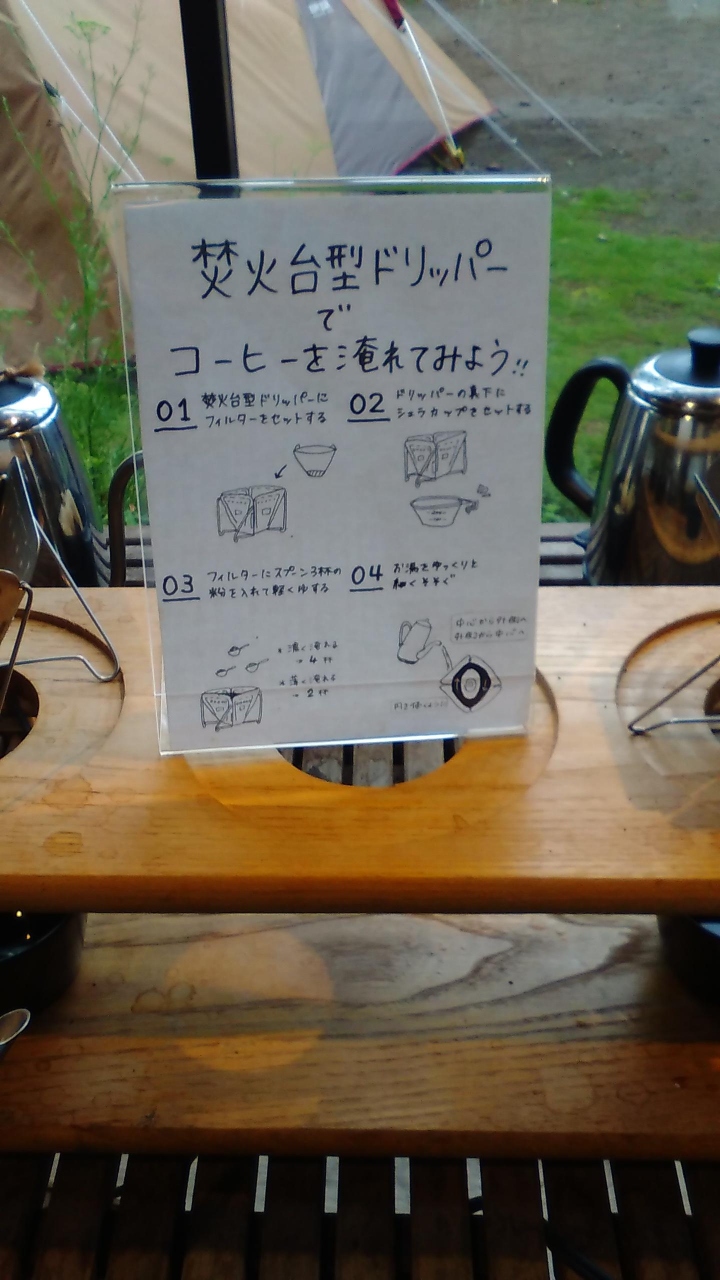 焚火台型ドリッパー
で
コーヒーを淹れてみよう!!
01 焚火台型ドリッパーに
フィルターをセットする
02 ドリッパーの真下に
シェラカップをセットする
03 フィルターにスプーン3杯の
粉を入れて軽くゆする
* 濃く淹れる
→ 4杯
* 薄く淹れる
→ 2杯
04 お湯をゆっくりと
細くそそぐ
中心から外側へ
外側から中心へ
円を描くように